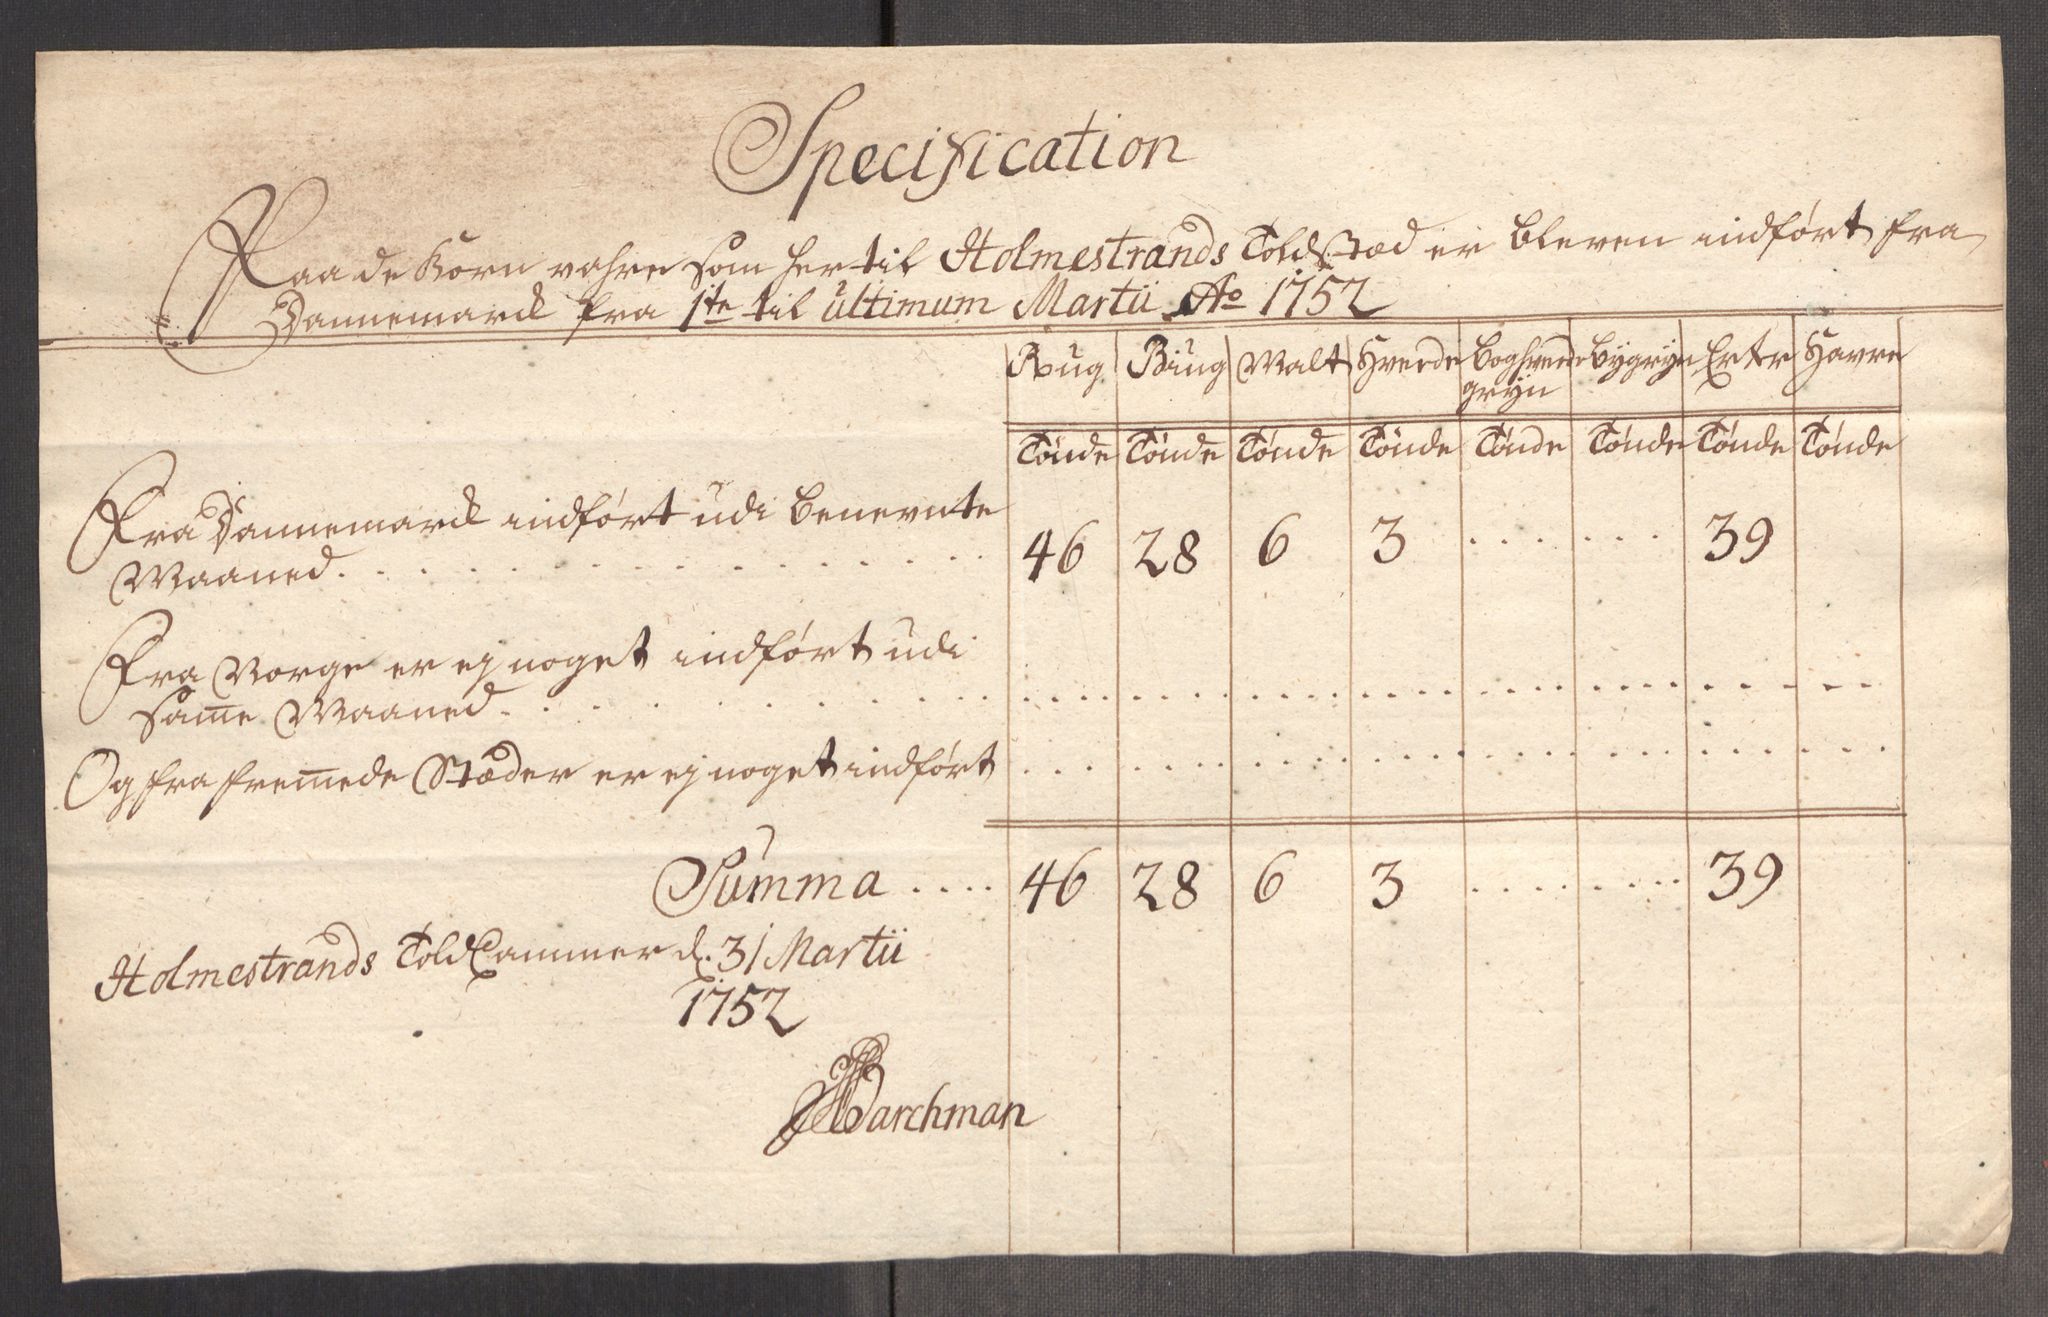 Specification
Paa de Korn vahre som her til Holmestrands Toldstæd er bleven indført fra
Dannemarck fra 1te til ultimum Martii Ao 1752
Rug Biug Malt Hvede Boghvede Bygryn Erter Havre
gryn
Tønde Tønde Tønde Tønde Tønde Tønde Tønde Tønde
Fra Dannemarck indført udi benevnte
Maaned . . . . 46 28 6 3 . . . . . . 39
Fra Norge er ej noget indført udi
samme Maaned . . . .
Og fra fremmede Stæder er ej noget indført . . . .
Summa . . . . 46 28 6 3 . . . . . . 39
Holmestrands Told Cammer d. 31 Martii
1752
Barchman